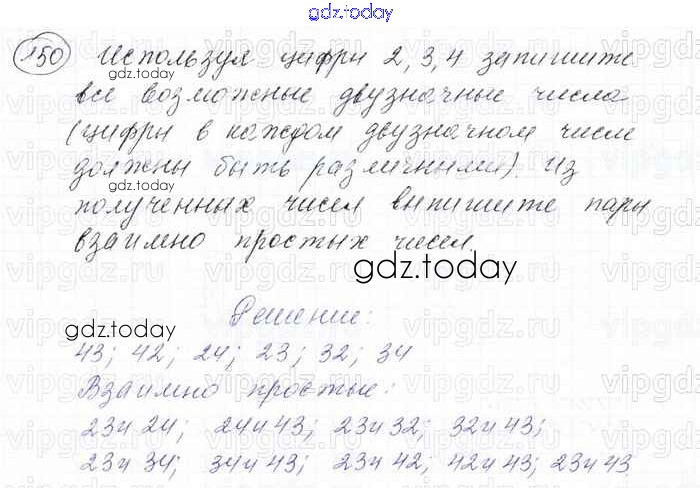 gdz.today
150 Используя цифры 2, 3, 4 запишите
gdz.today
все возможные двузначные числа
(цифры в каждом двузначном числе
должны быть различными). Из
gdz.today
полученных чисел выпишите пары
взаимно простых чисел.
gdz.today
Решение:
gdz.today
43; 42; 24; 23; 32; 34
Взаимно простые:
23 и 24; 24 и 43; 23 и 32; 32 и 43;
23 и 34; 34 и 43; 23 и 42; 42 и 43; 23 и 43
gdz.today